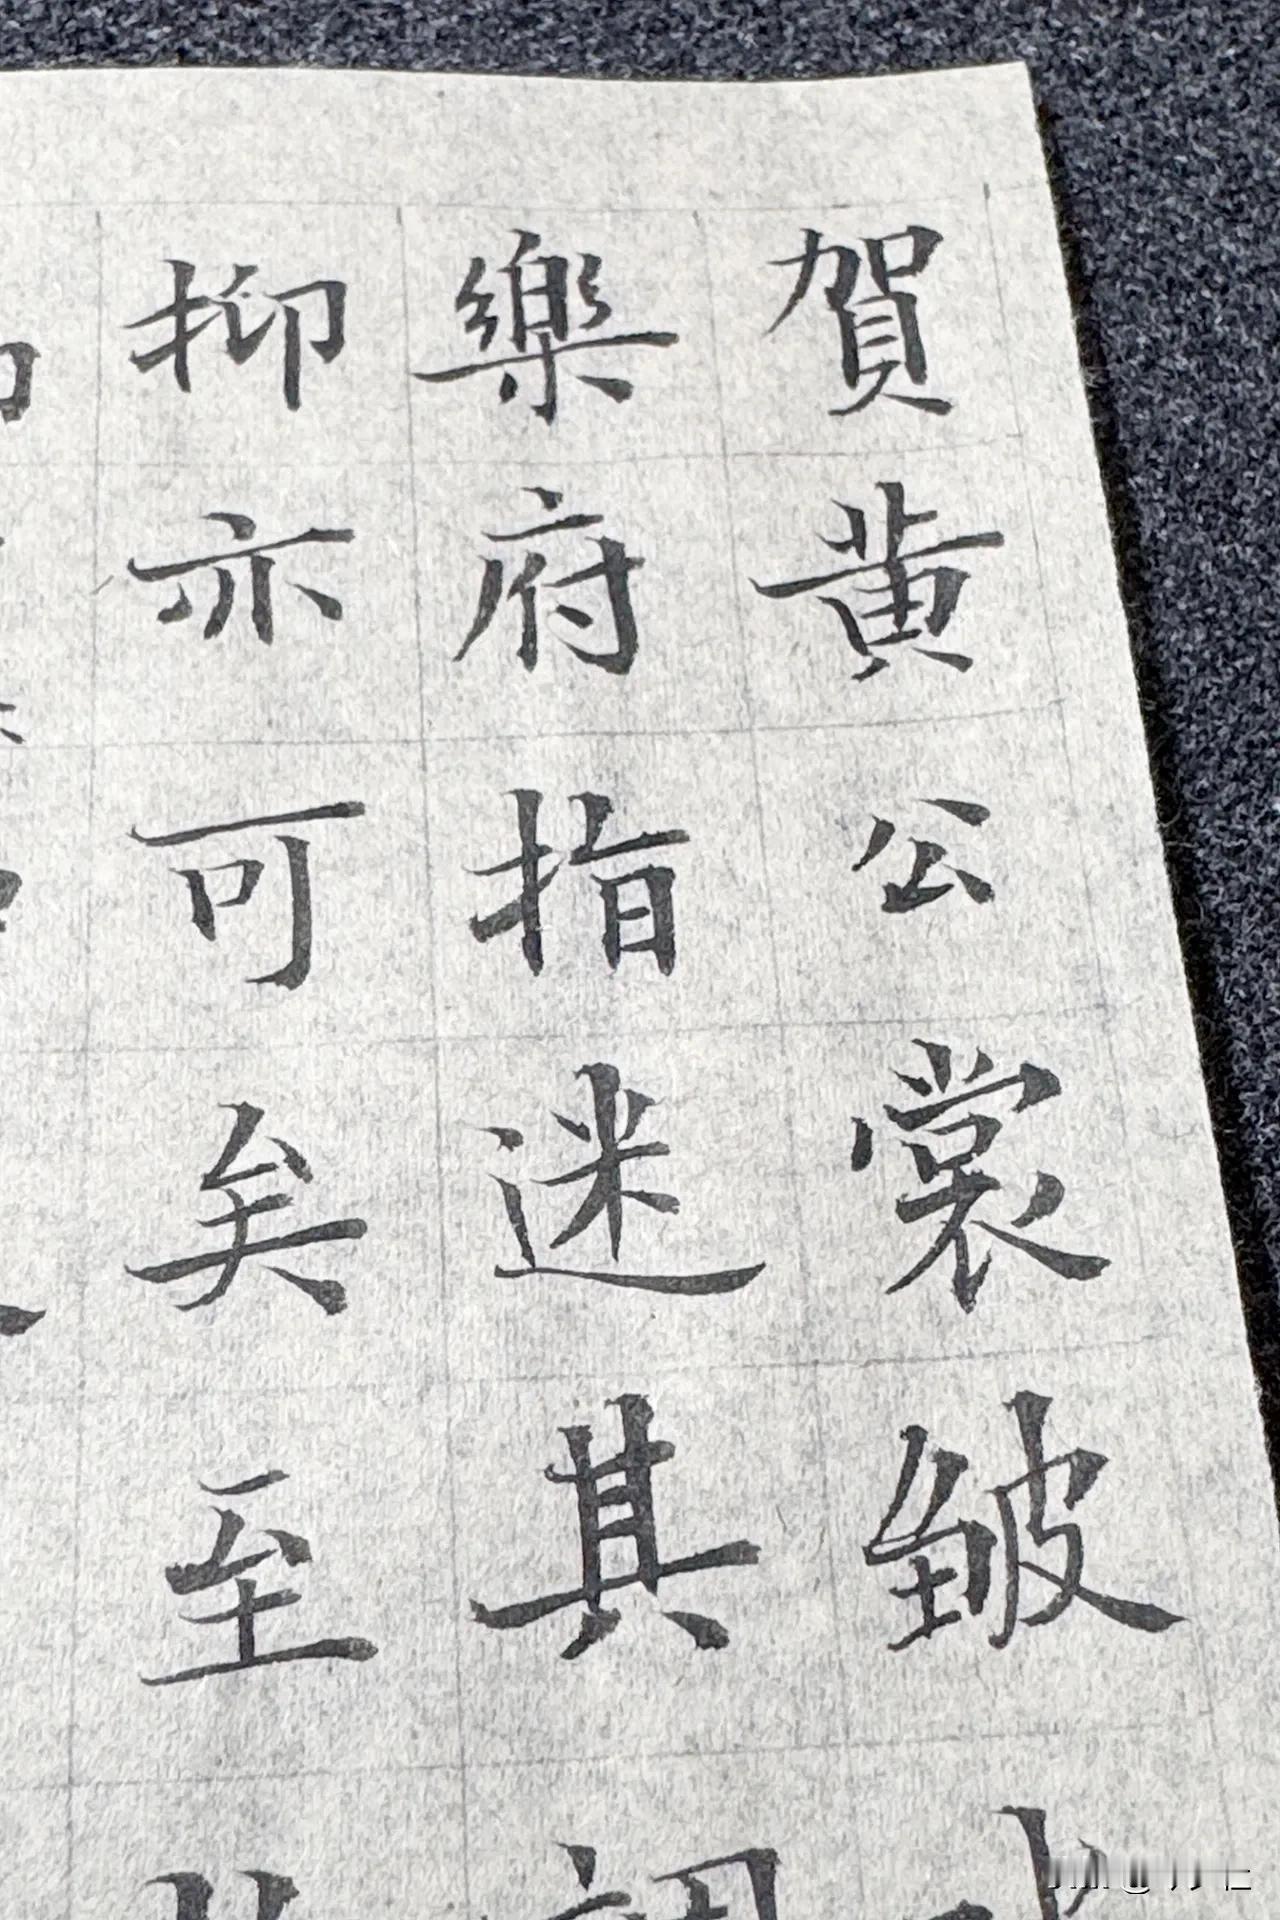 賀黄公裳皺
樂府指迷其
抑亦可矣至